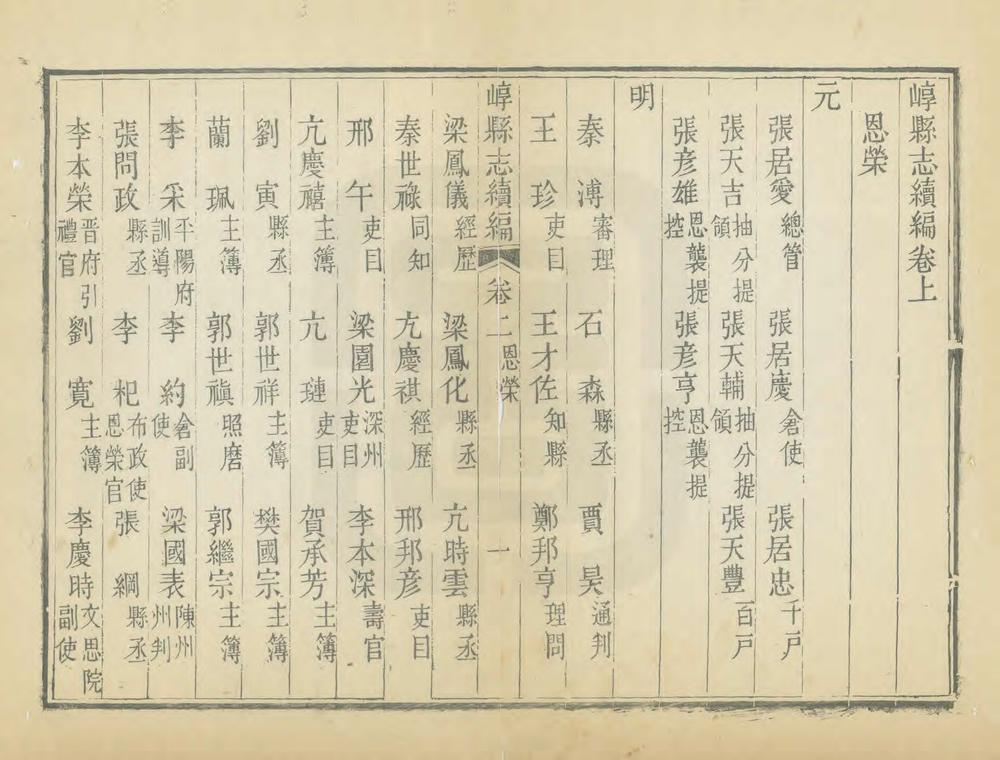 崞縣志續編卷上
恩榮
元
張居愛總管 張居慶倉使 張居忠千戶
張天吉抽分提領 張天輔抽分提領 張天豐百戶
張彥雄恩襲提控 張彥亨恩襲提控
明
秦溥審理 石森縣丞 賈昊通判
王珍吏目 王才佐知縣 鄭邦亨理問
崞縣志續編 卷二 恩榮 一
梁鳳儀經歷 梁鳳化縣丞 亢時雲縣丞
秦世祿同知 亢慶祺經歷 邢邦彥吏目
邢午吏目 梁園光深州吏目 李本深壽官
亢慶禧主簿 亢璉吏目 賀承芳主簿
劉寅縣丞 郭世祥主簿 樊國宗主簿
蘭珮主簿 郭世禎照磨 郭繼宗主簿
李采平陽府訓導 李約倉副使 梁國表陳州州判
張問政縣丞 李杞布政使恩榮官 張綱縣丞
李本榮晋府引禮官 劉寬主簿 李慶時文思院副使